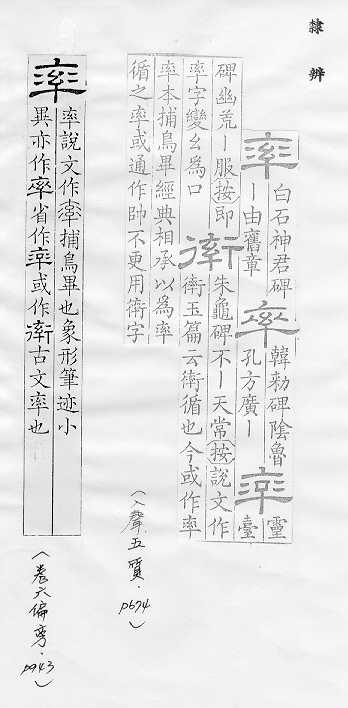 隸辨
率
白石神君碑
ー由舊章
率
韓勑碑陰魯
孔方廣ー
率
靈
臺
碑幽荒ー服按即
率字變幺為口
𧗿
朱龜碑不ー天常按說文作
𧗿玉篇云𧗿循也今或作率
率本捕鳥畢經典相承以為率
循之率或通作帥不更用𧗿字
(入聲五質.p674)
率
率說文作率捕鳥畢也象形筆迹小
異亦作率省作率或作𧗿古文率也
(卷六偏旁.p943)